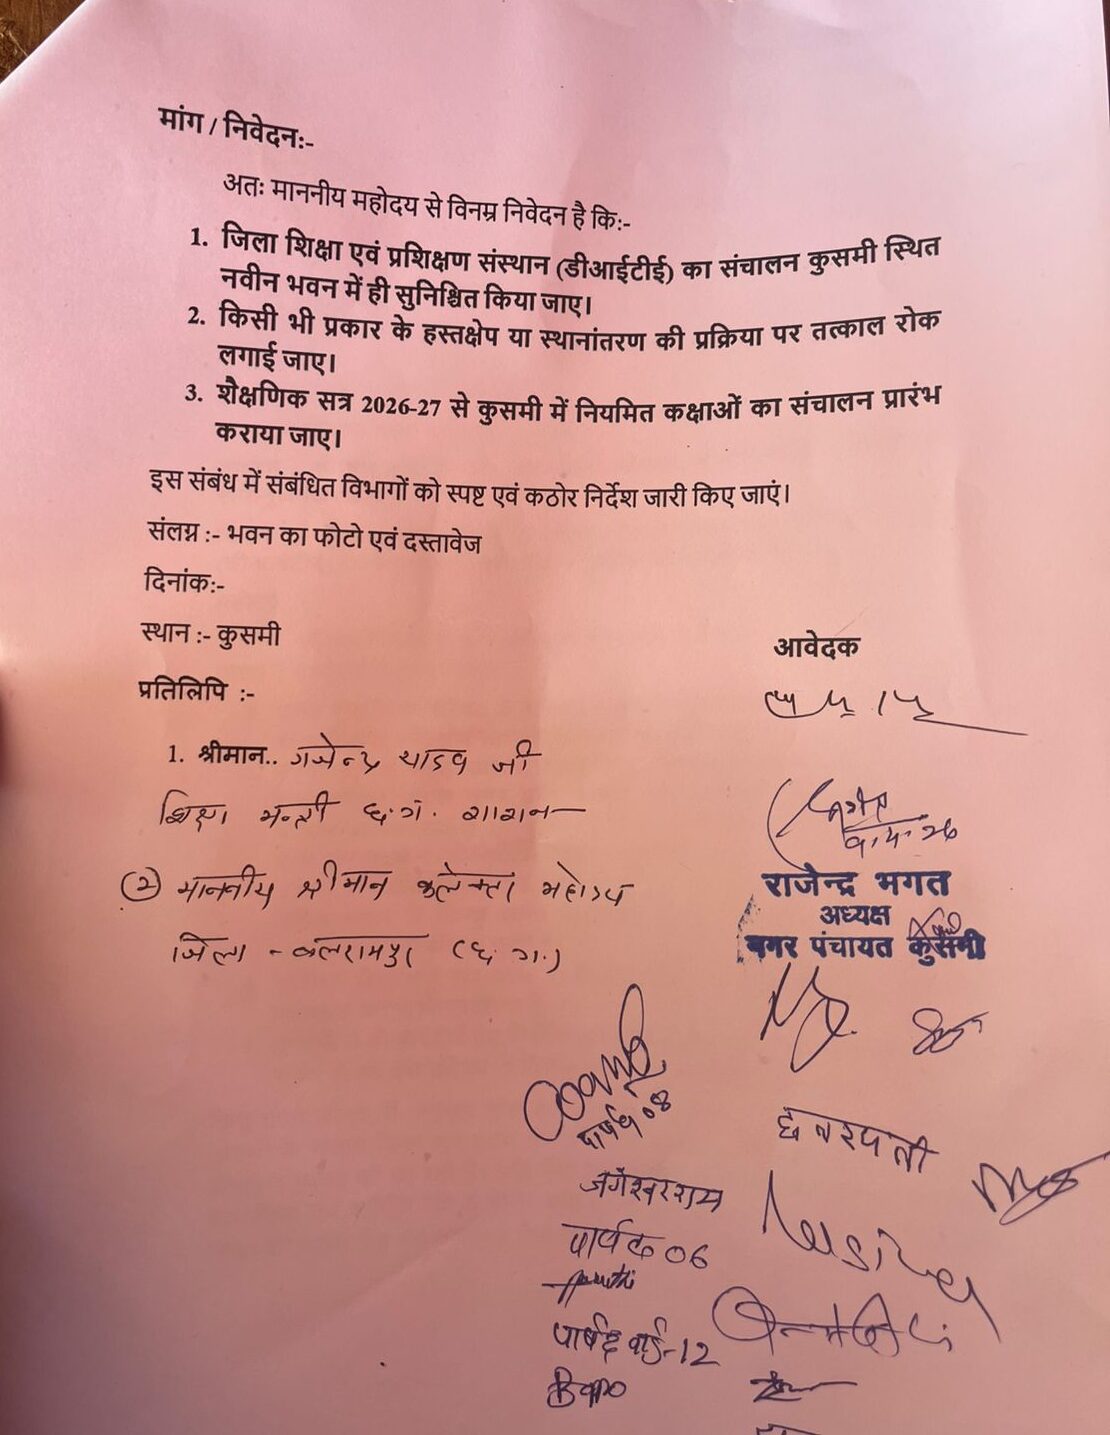 मांग / निवेदनः-
अतः माननीय महोदय से विनम्र निवेदन है किः-
1. जिला शिक्षा एवं प्रशिक्षण संस्थान (डीआईटीई) का संचालन कुसमी स्थित
नवीन भवन में ही सुनिश्चित किया जाए।
2. किसी भी प्रकार के हस्तक्षेप या स्थानांतरण की प्रक्रिया पर तत्काल रोक
लगाई जाए।
3. शैक्षणिक सत्र 2026-27 से कुसमी में नियमित कक्षाओं का संचालन प्रारंभ
कराया जाए।
इस संबंध में संबंधित विभागों को स्पष्ट एवं कठोर निर्देश जारी किए जाएं।
संलग्न :- भवन का फोटो एवं दस्तावेज
दिनांकः-
स्थान :- कुसमी
आवेदक
प्रतिलिपि :-
1. श्रीमान.. गजेन्द्र यादव जी
शिक्षा मन्त्री छ.ग. शासन
② माननीय श्रीमान कलेक्टर महोदय
जिला - बलरामपुर (छ.ग.)
राजेन्द्र भगत
अध्यक्ष
नगर पंचायत कुसमी
पार्षद 08
छत्रपती
जगेश्वर राम
पार्षद 06
पार्षद वार्ड-12